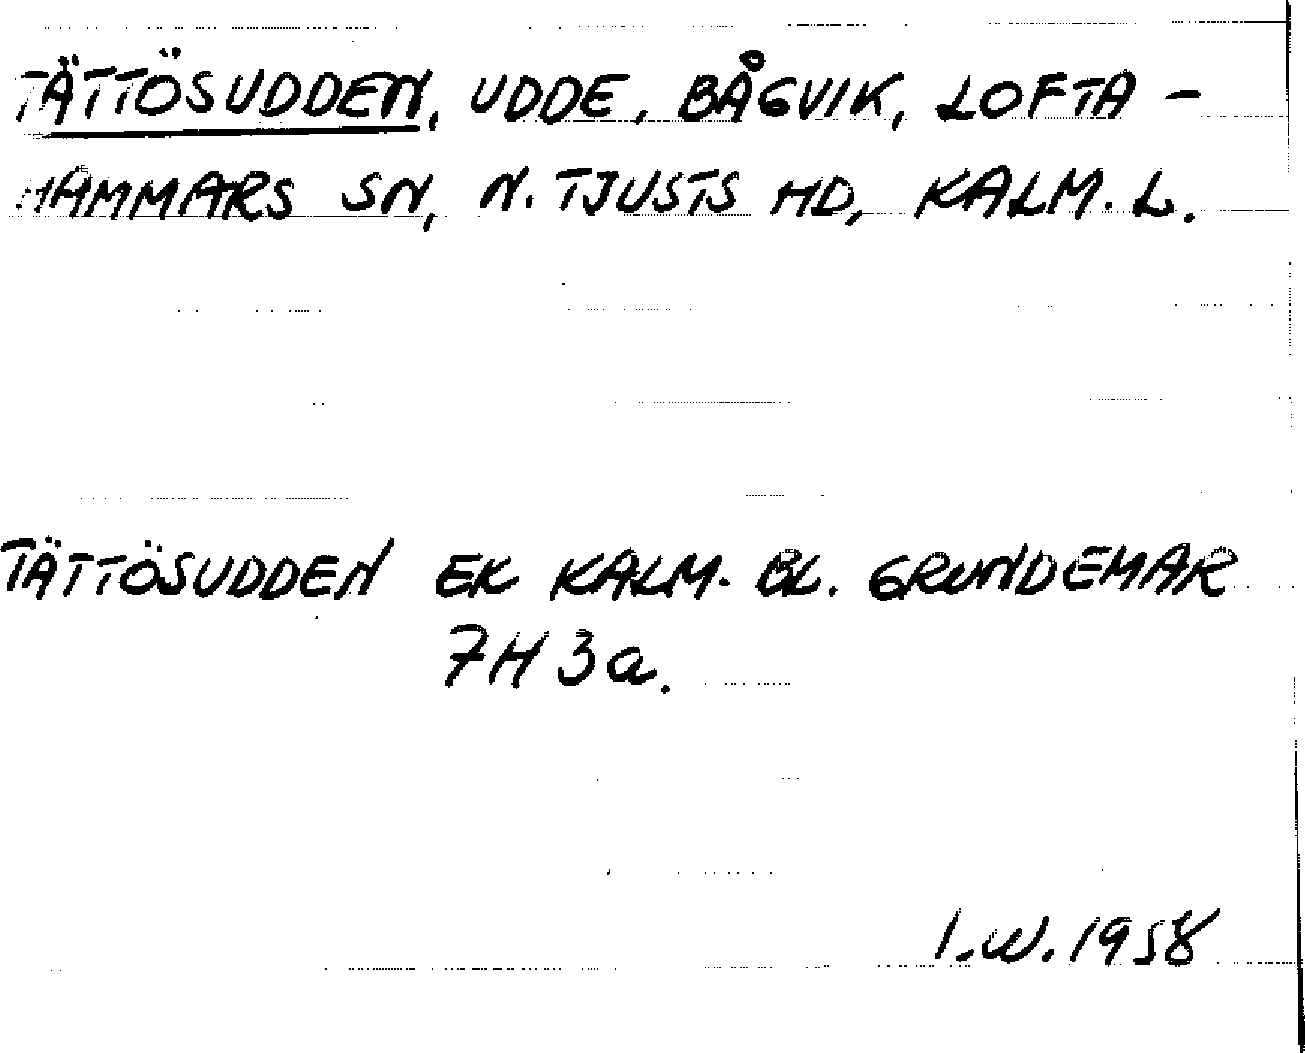 TÄTTÖSUDDEN, UDDE, BÅGVIK, LOFTA-
HAMMARS SN, N. TJUSTS HD, KALM. L.
TÄTTÖSUDDEN EK KALM. BL. GRUNDEMAR
7H 3a.
I.W. 1958